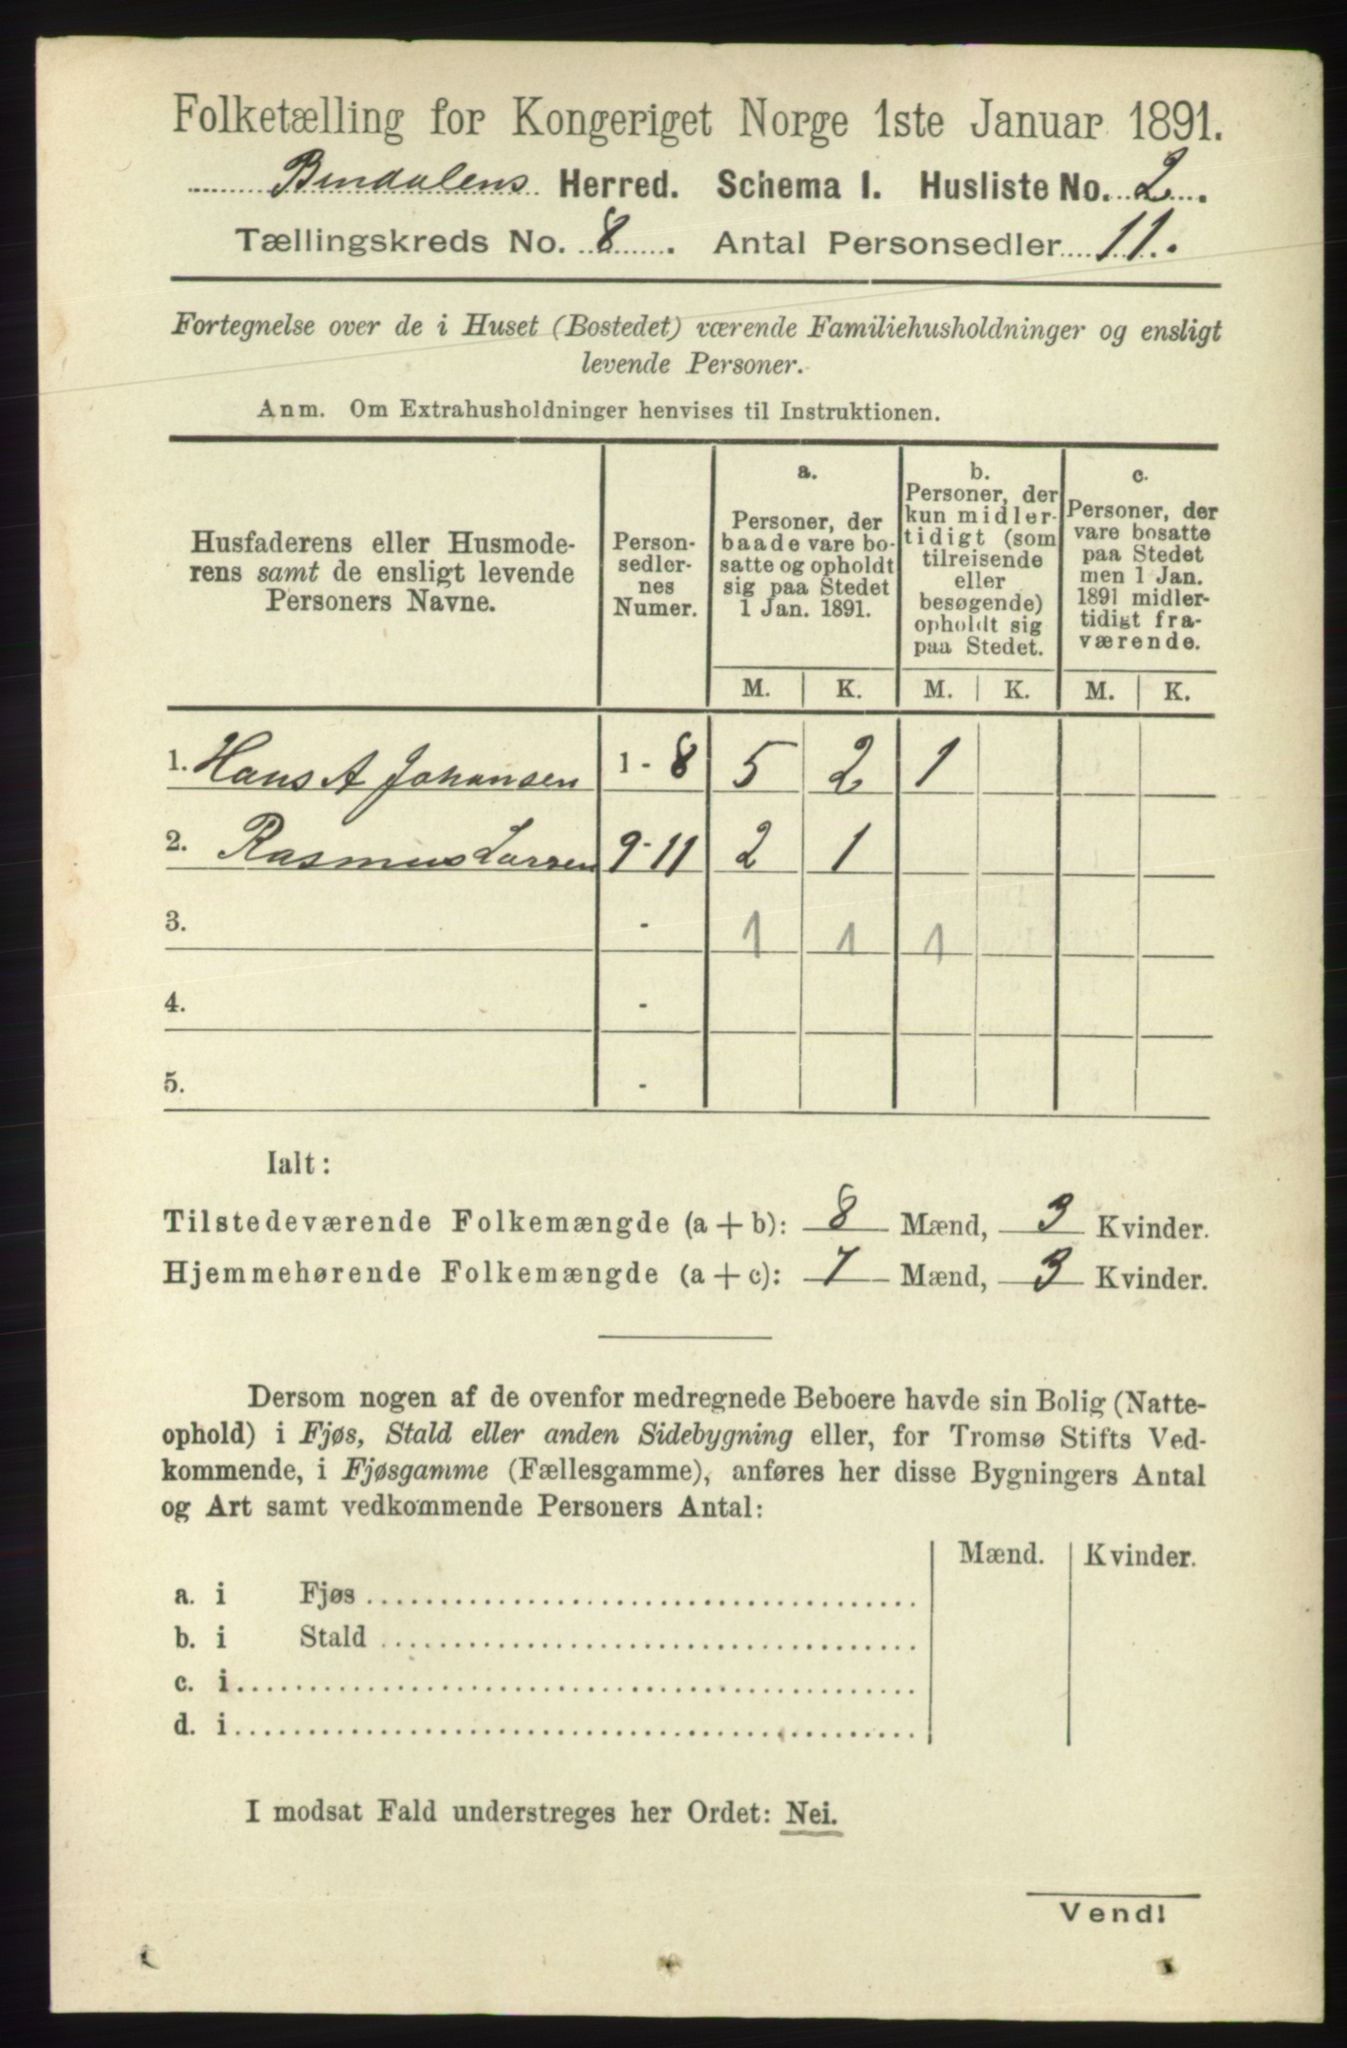 Folketælling for Kongeriget Norge 1ste Januar 1891.
Bindalens Herred. Schema I. Husliste No. 2.
Tællingskreds No. 8. Antal Personsedler 11.
Fortegnelse over de i Huset (Bostedet) værende Familiehusholdninger og ensligt
levende Personer.
Anm. Om Extrahusholdninger henvises til Instruktionen.
Husfaderens eller Husmode-
rens samt de ensligt levende
Personers Navne.
Person-
sedler-
nes
Numer.
a.
Personer, der
baade vare bo-
satte og opholdt
sig paa Stedet
1 Jan. 1891.
b.
Personer, der
kun midler-
tidigt (som
tilreisende
eller
besøgende)
opholdt sig
paa Stedet.
c.
Personer, der
vare bosatte
paa Stedet
men 1 Jan.
1891 midler-
tidigt fra-
værende.
M. K. M. K. M. K.
1. Hans A Johansen 1 - 8 5 2 1
2. Rasmus Larsen 9-11 2 1
3. - 1 1 1
4. -
5. -
Ialt:
Tilstedeværende Folkemængde (a + b): 8 Mænd, 3 Kvinder.
Hjemmehørende Folkemængde (a + c): 7 Mænd, 3 Kvinder.
Dersom nogen af de ovenfor medregnede Beboere havde sin Bolig (Natte-
ophold) i Fjøs, Stald eller anden Sidebygning eller, for Tromsø Stifts Ved-
kommende, i Fjøsgamme (Fællesgamme), anføres her disse Bygningers Antal
og Art samt vedkommende Personers Antal:
Mænd. Kvinder.
a. i Fjøs
b. i Stald
c. i
d. i
I modsat Fald understreges her Ordet: Nei.
Vend!